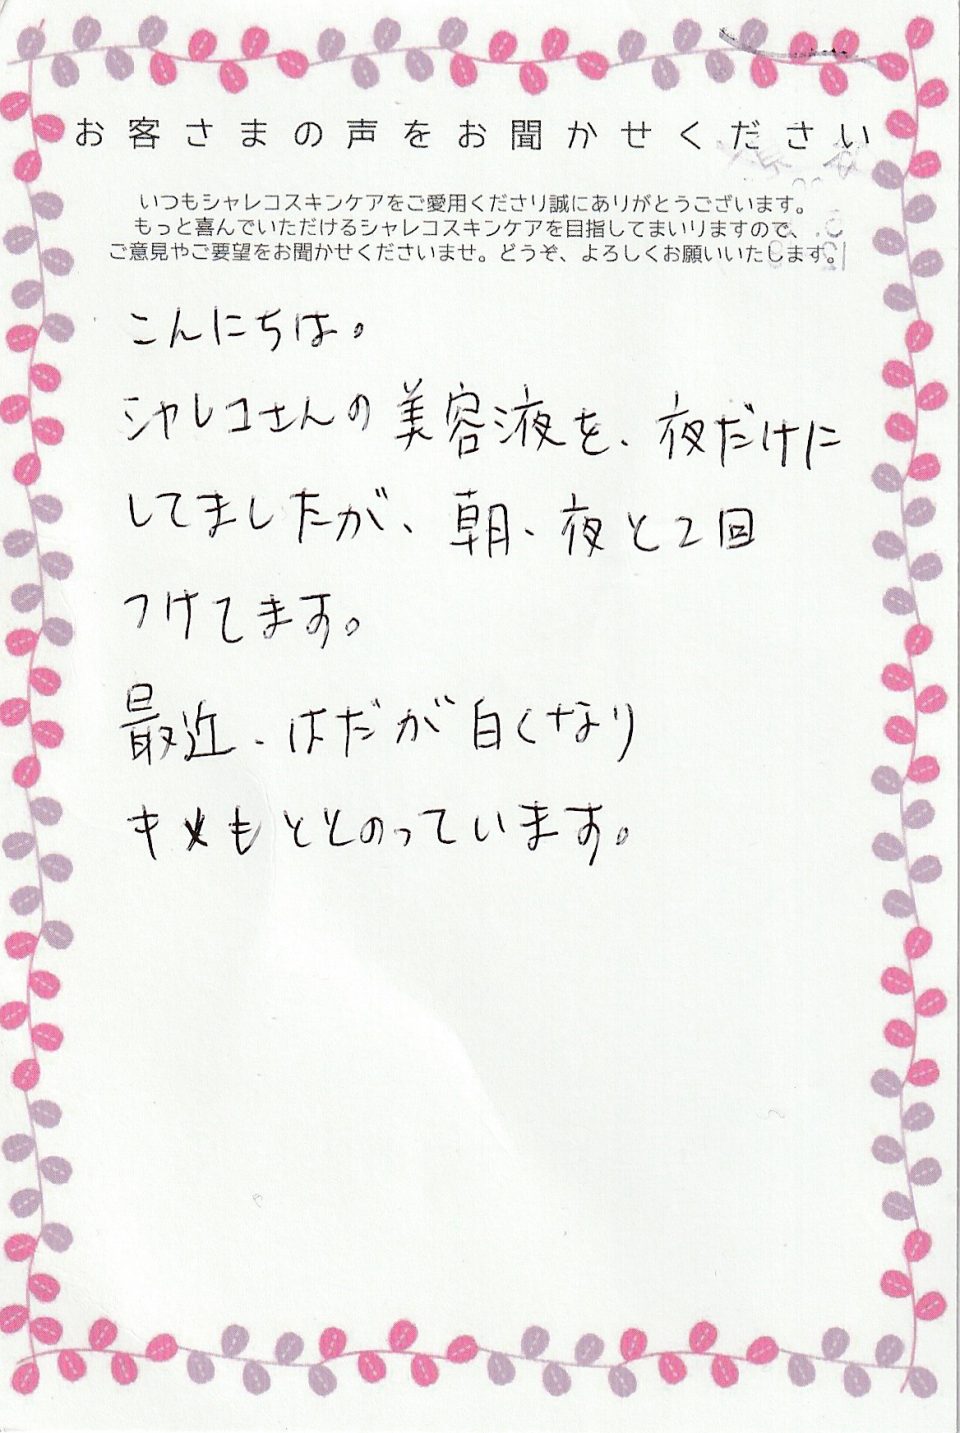 お客さまの声をお聞かせください
いつもシャレコスキンケアをご愛用くださり誠にありがとうございます。
もっと喜んでいただけるシャレコスキンケアを目指してまいりますので、
ご意見やご要望をお聞かせくださいませ。どうぞ、よろしくお願いいたします。
こんにちは。
シャレコさんの美容液を、夜だけに
してましたが、朝、夜と2回
つけてます。
最近、はだが白くなり
キメもととのっています。